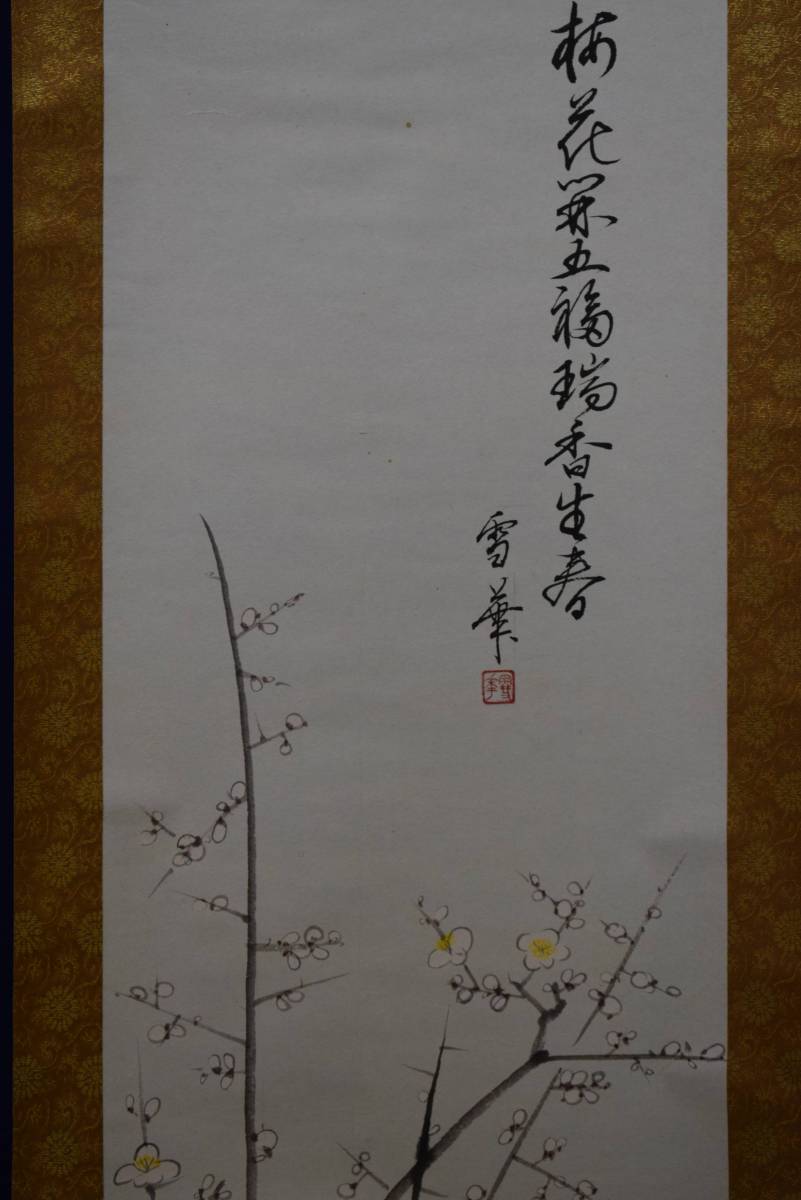 梅花開五福瑞香生春
雪華